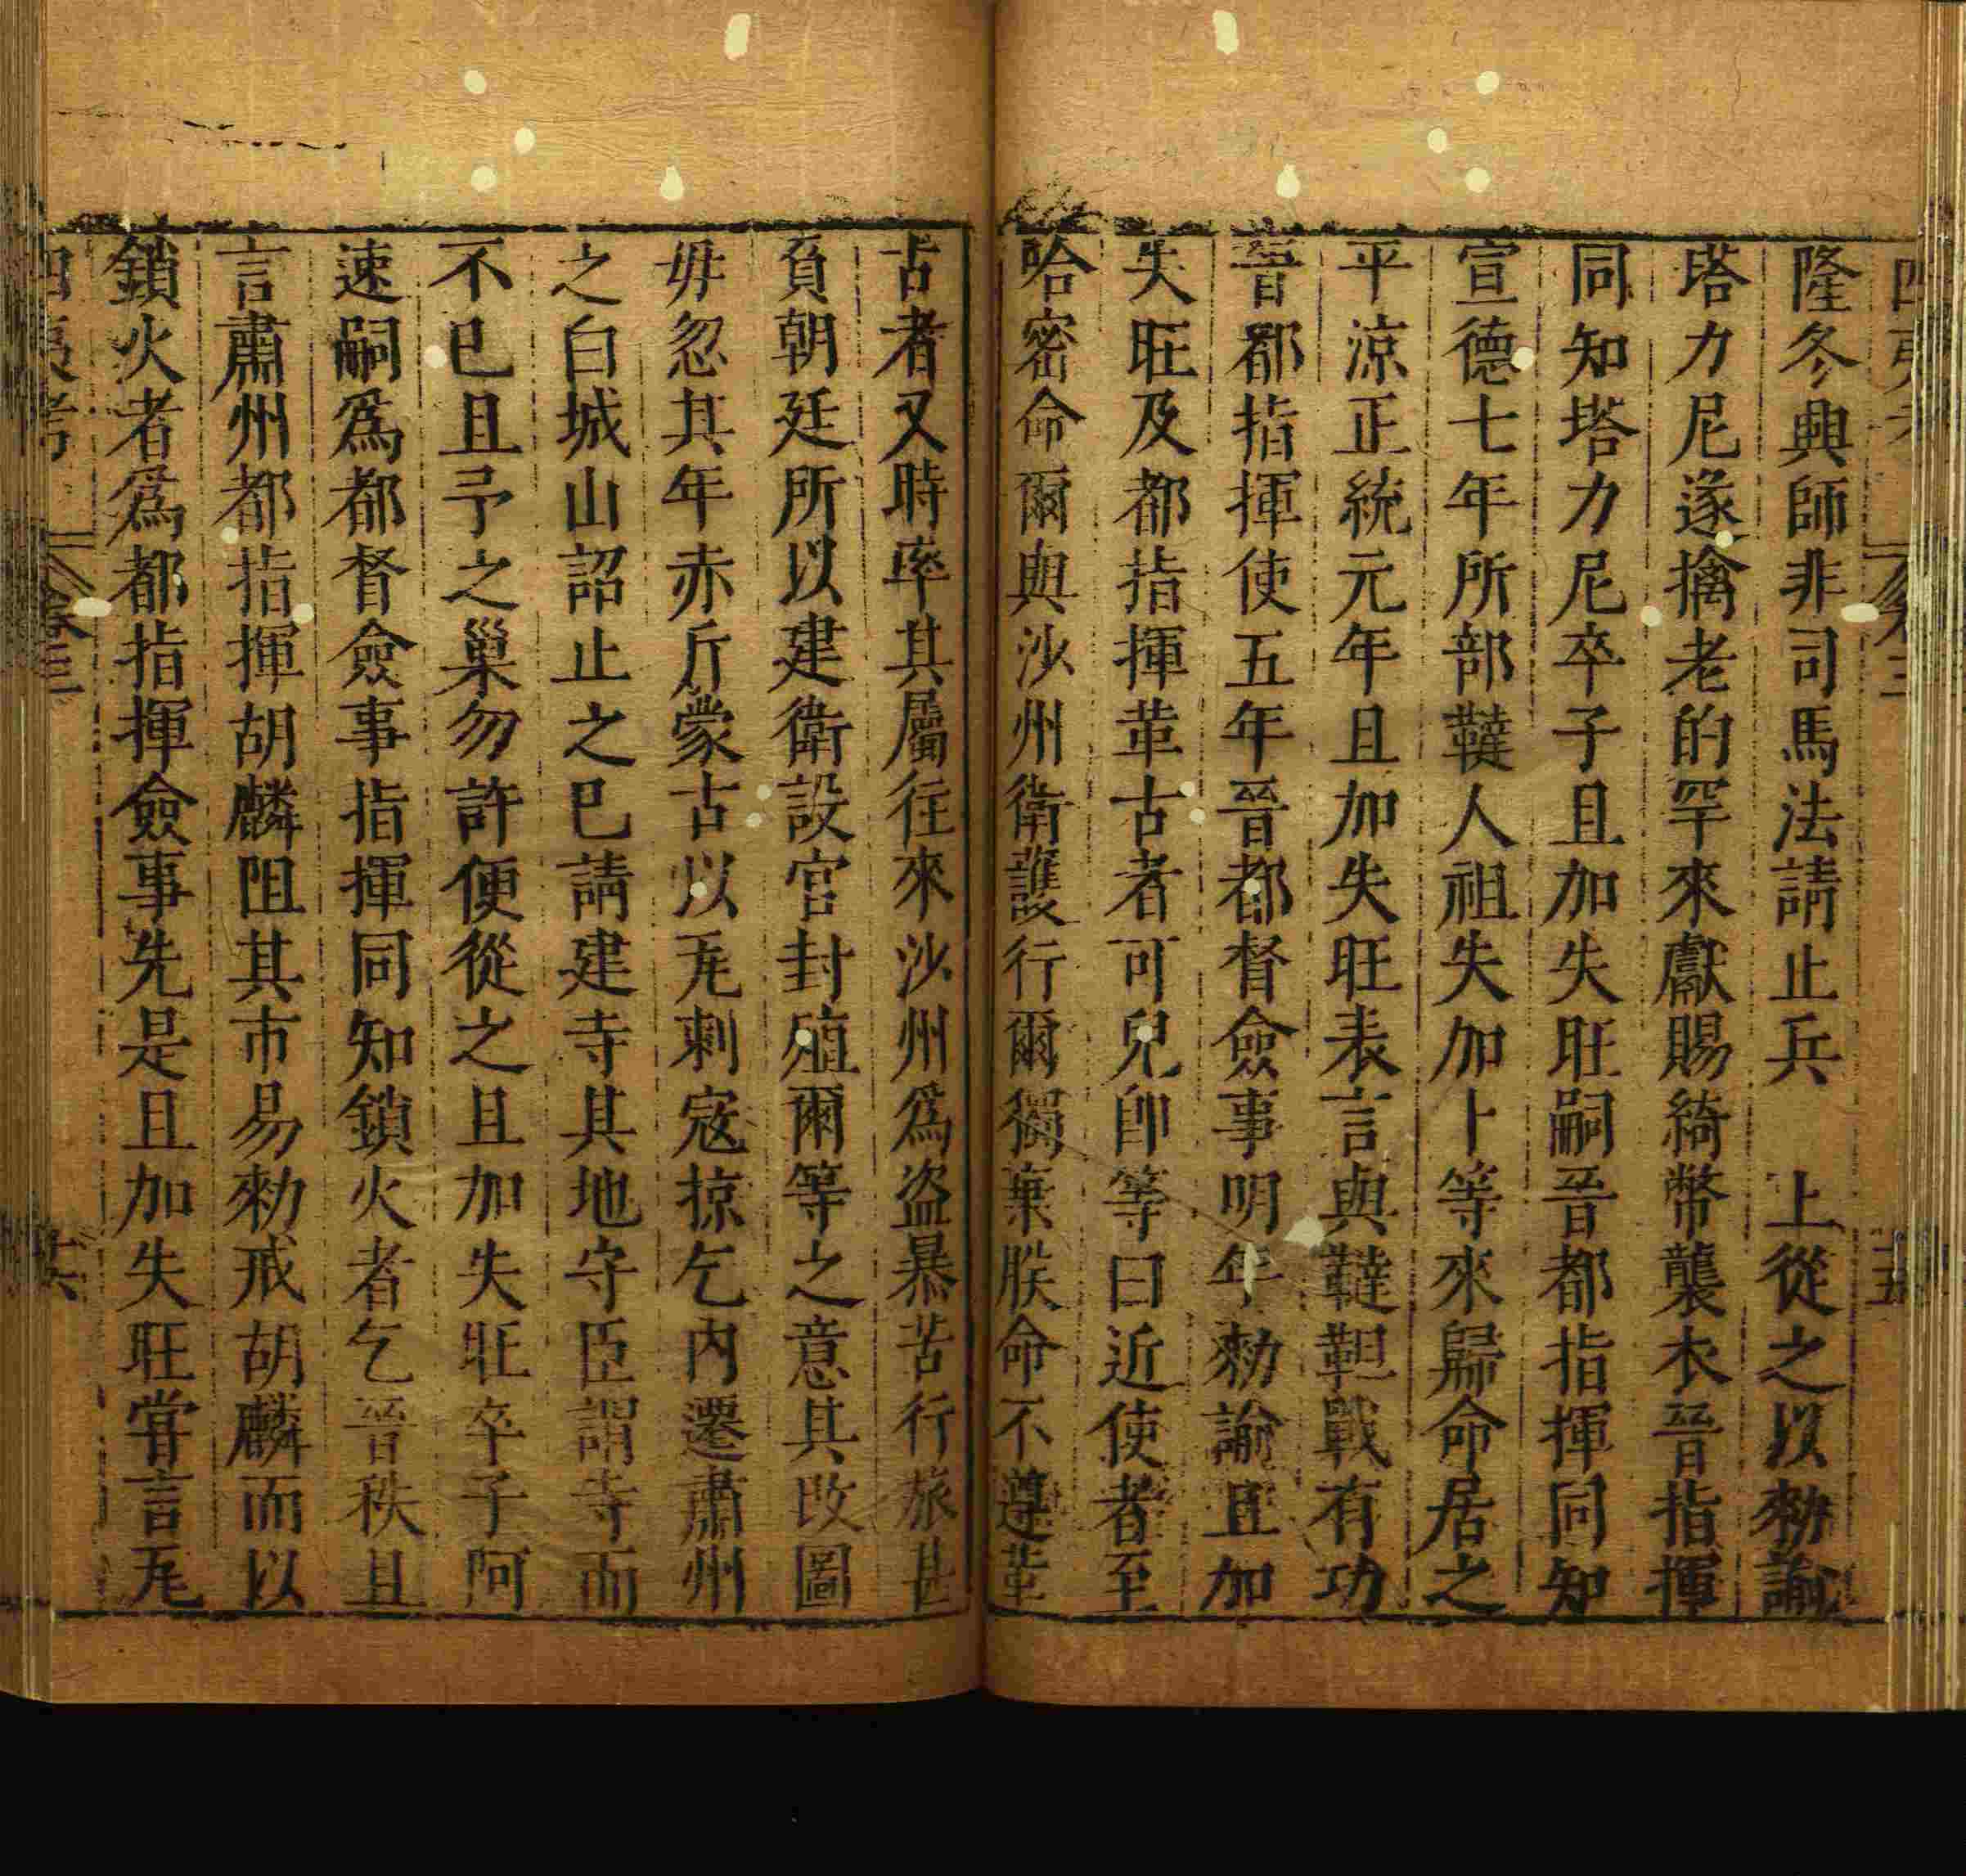 隆冬興師非司馬法請止兵　上從之以勑諭
塔力尼遂擒老的罕來獻賜綺幣襲衣晉指揮
同知塔力尼卒子且加失旺嗣晉都指揮同知
宣德七年所部韃人祖失加卜等來歸命居之
平涼正統元年且加失旺表言與韃靼戰有功
晉都指揮使五年晉都督僉事明年勑諭且加
失旺及都指揮革古者可兒即等曰近使者至
哈密命爾與沙州衛護行爾獨棄朕命不遵革
古者又時率其屬往來沙州為盜暴苦行旅甚
負朝廷所以建衛設官封殖爾等之意其改圖
毋忽其年赤斤蒙古以瓦剌寇掠乞內遷肅州
之白城山詔止之已請建寺其地守臣謂寺而
不已且予之巢勿許便從之且加失旺卒子阿
速嗣爲都督僉事指揮同知鎖火者乞晉秩且
言肅州都指揮胡麟阻其市易勑戒胡麟而以
鎖火者爲都指揮僉事先是且加失旺嘗言瓦
四夷考　卷三